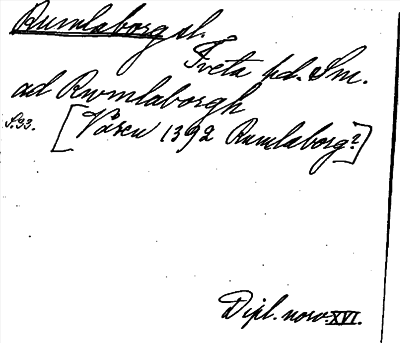 Rumlaborg sl.
Tveta hd. Sm.
ad Rwmlaborgh
S. 93. [Våren 1392 Rumlaborg?]
Dipl. norv. XVI.